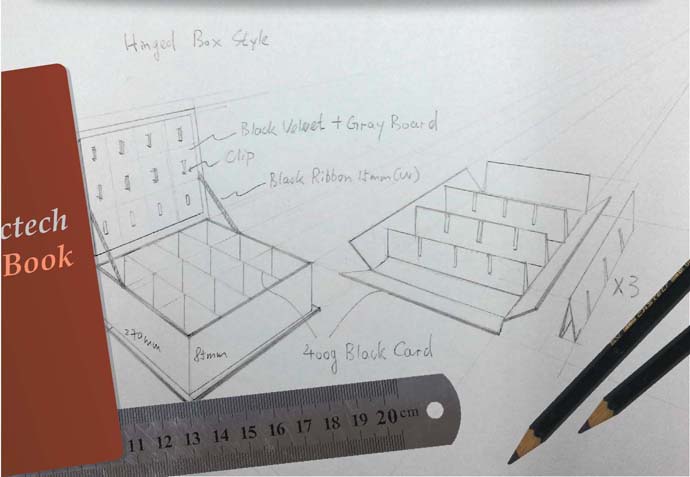 Hinged Box Style
Black Velvet + Gray Board
Clip
Black Ribbon 15mm(W)
ctech
Book
270mm
85mm
400g Black Card
X3
11 12 13 14 15 16 17 18 19 20 cm